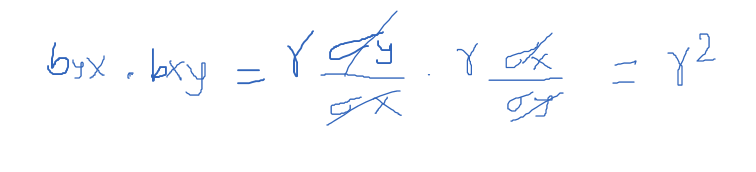 byx . bxy = r σy/σx . r σx/σy = r²